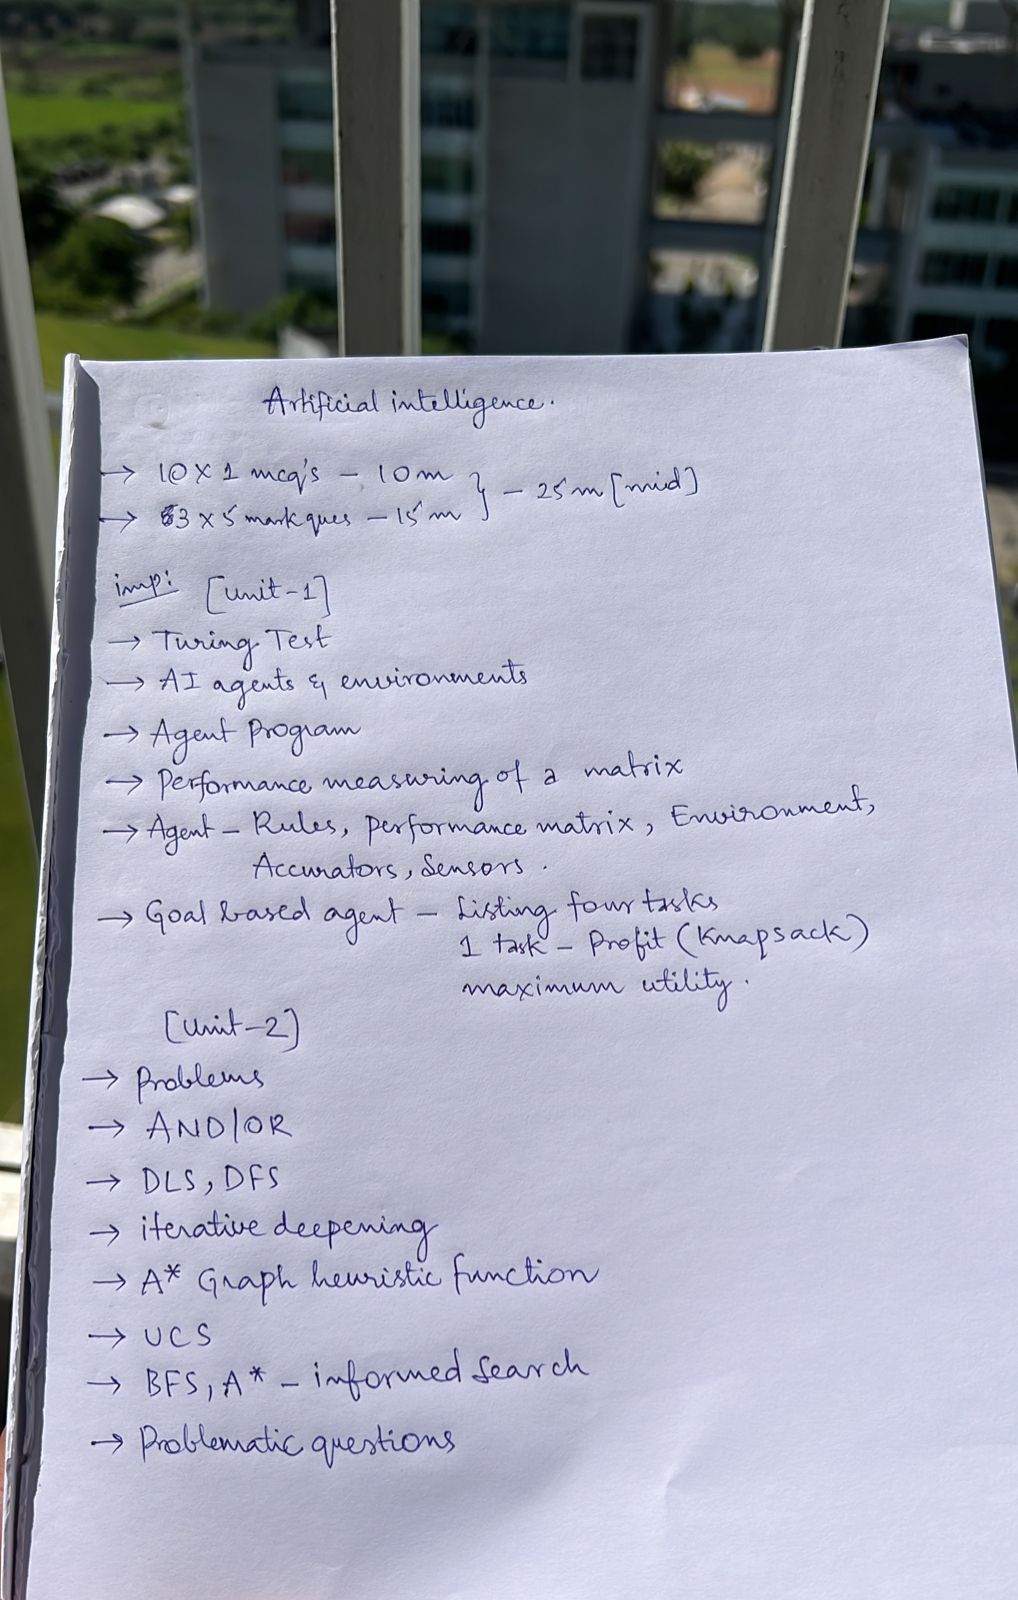 Artificial intelligence.
→ 10 X 1 mcq's - 10m
→ 3 x 5 mark ques - 15m } - 25m [mid]
imp: [unit-1]
→ Turing Test
→ AI agents & environments
→ Agent Program
→ Performance measuring of a matrix
→ Agent - Rules, performance matrix, Environment,
Accurators, Sensors.
→ Goal based agent - Listing four tasks
1 task - Profit (Knapsack)
maximum utility.
[Unit-2]
→ Problems
→ AND/OR
→ DLS, DFS
→ iterative deepening
→ A* Graph heuristic function
→ UCS
→ BFS, A* - informed Search
→ Problematic questions